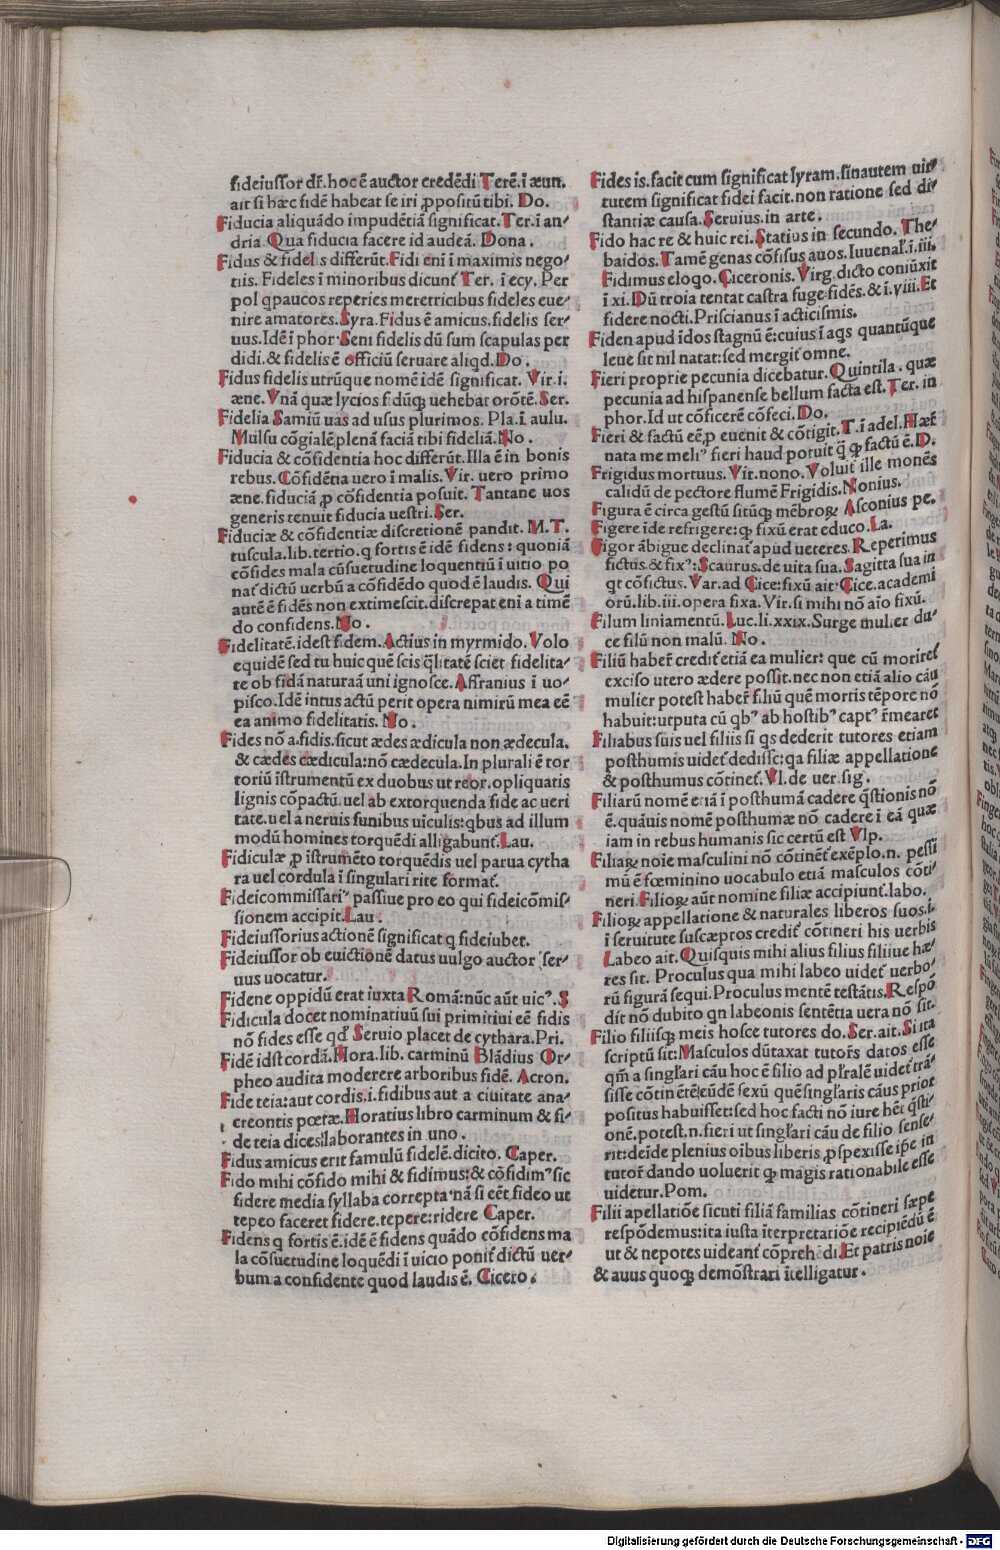 fideiussor dr̄. hoc ē auctor credēdi Terē. ī æun.
ait si hæc fidē habeat se iri ꝓpositū tibi. Do.
Fiducia aliquādo impudētiā significat. Ter. ī an⸗
dria. Qua fiducia facere id audeā. Dona.
Fidus & fidelis differūt. Fidi eni ī maximis nego⸗
tiis. Fideles ī minoribus dicunt̄ Ter. ī ecy. Per
pol q̄paucos reperies meretricibus fideles eue⸗
nire amatores. Syra. Fidus ē amicus. fidelis ser⸗
uus. Idē ī phor. Seni fidelis dū sum scapulas per
didi. & fidelis ē officiū seruare aliqd. Do.
Fidus fidelis utrūque nomē idē significat. Vir. i.
æne. Vnā quæ lycios f dūq; uehebat orōtē. Ser.
Fidelia Samiū uas ad usus plurimos. Pla. ī aulu.
Mulsu cōgialē plenā faciā tibi fideliā. No.
Fiducia & cōfidentia hoc differūt. Illa ē in bonis
rebus. Cōfidētia uero ī malis. Vir. uero primo
æne. fiduciā ꝓ cōfidentia posuit. Tantane uos
generis tenuit fiducia uestri. Ser.
Fiduciæ & cōfidentiæ discretionē pandit. M. T.
tuscula. lib. tertio. q fortis ē idē fidens: quoniā
cōfides mala cūsuetudine loquentiū ī uitio po
nat̄ dictū uerbū a cōfidēdo quod ē laudis. Qui
autē ē fidēs non extimescit. discrepat eni a timē
do confidens. No.
Fidelitatē. idest fidem. Actius in myrmido. Volo
equidē sed tu huic quē scis q̄litatē sciet fidelita⸗
te ob fidā naturaā uni ignosce. Affranius ī uo⸗
pisco. Idē intus actū perit opera nimirū mea eē
ea animo fidelitatis. No.
Fides nō a. fidis. sicut ædes ædicula non ædecula.
& cædes cædicula: nō cædecula. In plurali ē tor
toriū īstrumentū ex duobus ut reor. opliquatis
lignis cōpactū. uel ab extorquenda fide ac ueri
tate. uel a neruis funibus uīculis: qbus ad illum
modū homines torquēdi alligabunt̄. Lau.
Fidiculæ ꝓ īstrumēto torquēdis uel parua cytha
ra uel cordula ī singulari rite format̄.
Fideicommissariꝰ passiue pro eo qui fideicōmis⸗
sionem accipit. Lau.
Fideiussorius actionē significat q fideiubet.
Fideiussor ob euictionē datus uulgo auctor ser⸗
uus uocatur.
Fidene oppidū erat iuxta Romā: nūc aūt uicꝰ. S
Fidicula docet nominatiuū sui primitiui eē fidis
nō fides esse qd̄ Seruio placet de cythara. Pri.
Fidē idst cordā. Hora. lib. carminū Blādius Or⸗
pheo audita moderere arboribus fidē. Acron.
Fide teia: aut cordis. i. fidibus aut a ciuitate ana⸗
creontis poetæ. Horatius libro carminum & fi⸗
de teia dices: laborantes in uno.
Fidus amicus erit famulū fidelē. dicito. Caper.
Fido mihi cōfido mihi & fidimus: & cōfidimꝰ sic
fidere media syllaba correpta. nā si cēt fideo ut
tepeo faceret fidere. tepere: ridere Caper.
Fidens q fortis ē. idē ē fidens quādo cōfidens ma
la cōsuetudine loquēdi ī uicio ponit̄ dictū uer⸗
bum a confidente quod laudis ē. Cicero.
Fides is. facit cum significat lyram. sinautem uir⸗
tutem significat fidei facit. non ratione sed di⸗
stantiæ causa. Seruius. in arte.
Fido hac re & huic rei. Statius in secundo. The⸗
baidos. Tamē genas cōfisus auos. Iuuenal̄. ī. iii.
Fidimus eloqo. Ciceronis. Virg. dicto coniūxit
ī xi. Dū troia tentat castra fuge fidēs. & ī. yiii. Et
fidere nocti. Priscianus ī acticismis.
Fiden apud īdos stagnū ē: cuius ī aqs quantūque
leue sit nil natat: sed mergit̄ omne.
Fieri proprie pecunia dicebatur. Quintila. quæ
pecunia ad hispanense bellum facta est. Ter. in
phor. Id ut cōficerē cōfeci. Do.
Fieri & factū eē ꝓ euenit & cōtigit. T. ī adel. Hær̄
nata me meliꝰ fieri haud potuit q̄ ꝙ factū ē. D.
Frigidus mortuus. Vir. nono. Voluit ille monēs
calidū de pectore flumē Frigidis. Nonius.
Figura ē circa gestū sitūq; mēbroꝝ Asconius pe.
Figere īde refrigere: ꝙ fixū erat educo. La.
Figor ābigue declinat̄ apud ueteres. Reperimus
fictus. & fixꝰ: Scaurus. de uita sua. Sagitta sua in
qt cōfictus. Var. ad Cice: fixū ait. Cice. academi
orū. lib. iii. opera fixa. Vir. si mihi nō aīo fixū.
Filum liniamentū. Luc. li. xxix. Surge mulier du⸗
ce filū non malū. No.
Filiū haber̄ credit̄ etiā ea mulier: que cū morirer̄
exciso utero ædere possit. nec non etiā alio cāu
mulier potest haber̄ filiū quē mortis tēpore nō
habuit: utputa cū qbꝰ ab hostibꝰ captꝰ r̄mearet
Filiabus suis uel filiis si qs dederit tutores etiam
posthumis uidet̄ dedisse: qa filiæ appellatione
& posthumus cōtinet̄. Vl. de uer. sig.
Filiarū nomē etiā ī posthumā cadere q̄stionis nō
ē. quāuis nomē posthumæ nō cadere ī eā quæ
iam in rebus humanis sic certū est Vlp.
Filiaꝝ noie masculini nō cōtinēt̄ exēplo. n. pessi
mū ē fœminino uocabulo etiā masculos cōti⸗
neri. Filioꝝ aūt nomine filiæ accipiunt̄. labo.
Filioꝝ appellatione & naturales liberos suos. i.
ī seruitute suscæptos credit̄ cōtineri his uerbis
Labeo ait. Quisquis mihi alius filius filiiue hæ⸗
res sit. Proculus qua mihi labeo uidet̄ uerbo⸗
rū figurā sequi. Proculus mentē testātis. Respō
dit nō dubito qn labeonis sentētia uera nō sit.
Filio filiisq; meis hosce tutores do. Ser. ait. Si ita
scriptū sit: Masculos dūtaxat tutor̄s datos esse
qm̄ a singl̄ari cāu hoc ē filio ad pl̄ralē uidet̄ trā⸗
sisse cōtinētē: eūdē sexū quē singl̄aris cāus prior
positus habuisset: sed hoc facti nō iure hēt q̄sti⸗
onē. potest. n. fieri ut singl̄ari cāu de filio sense⸗
rit: deīde plenius oibus liberis ꝓspexisse ip̄e in
tutor̄ dando uoluerit ꝙ magis rationabile esse
uidetur. Pom.
Filii apellatiōe sicuti filiā familias cōtineri sæpe
respōdemus: ita iusta īterpretatiōe recipiēdū ē
ut & nepotes uideant̄ cōprehēdi. Et patris noie
& auus quoq; demōstrari ītelligatur.
Digitalisierung gefördert durch die Deutsche Forschungsgemeinschaft - DFG